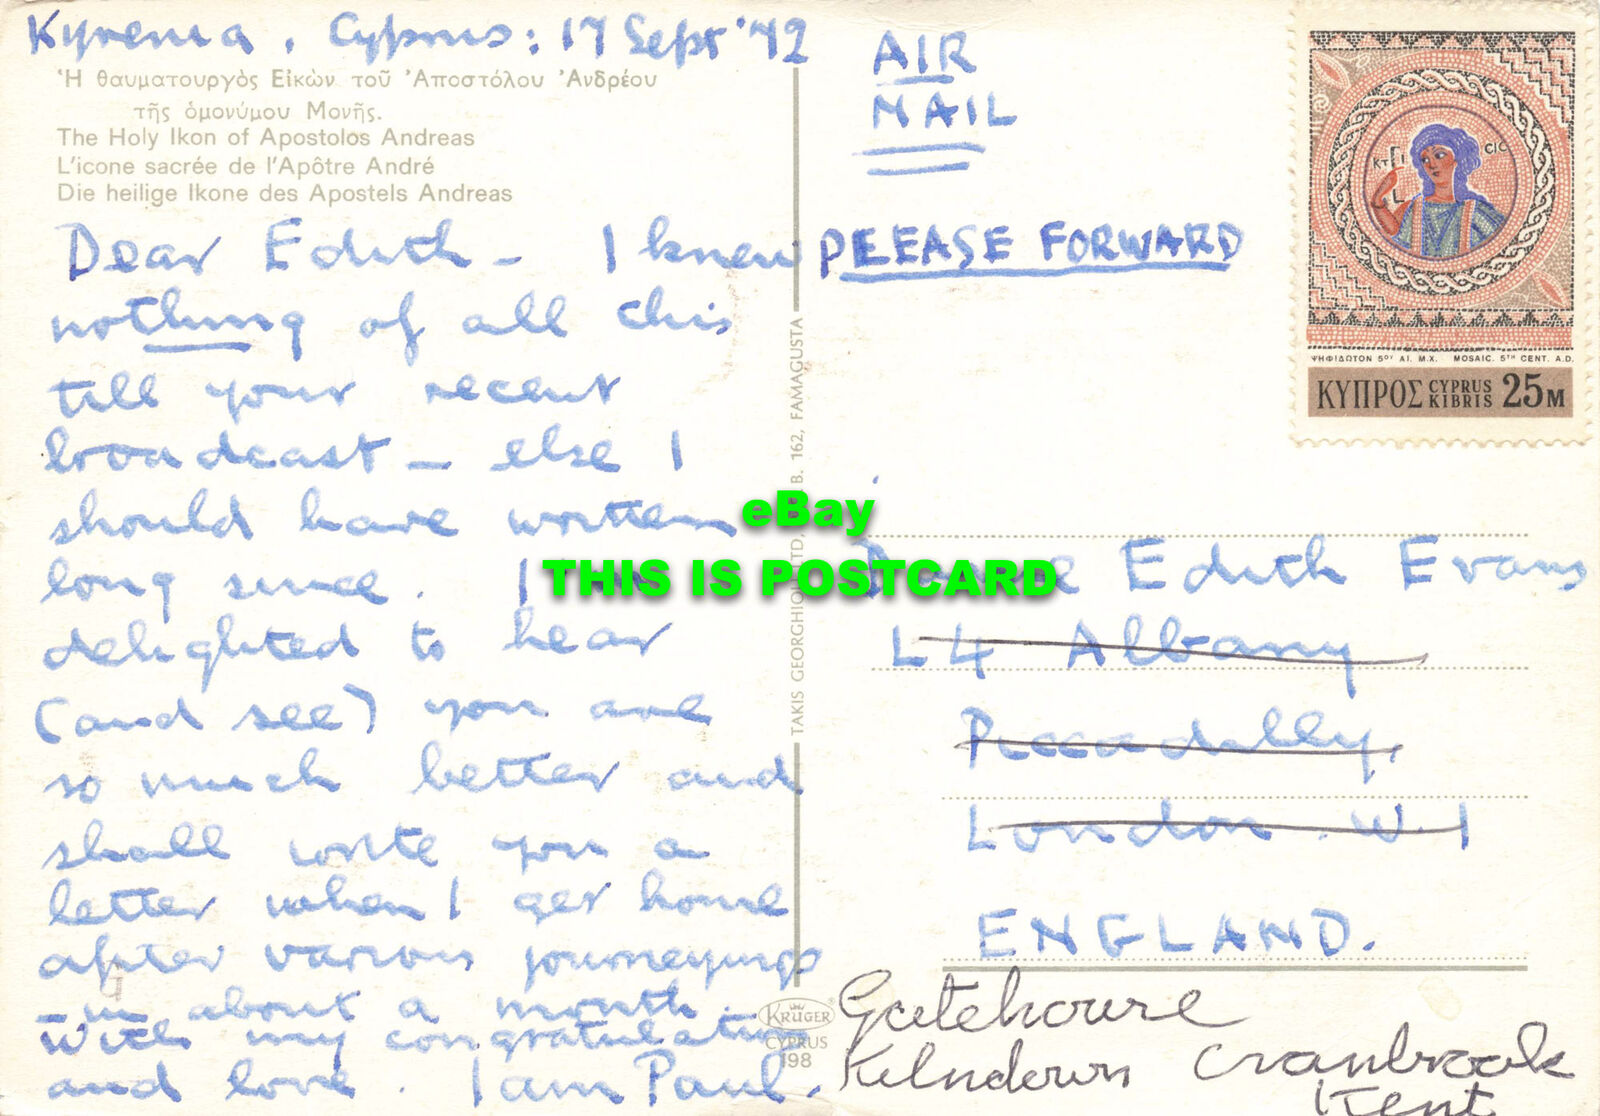 Kyrenia, Cyprus: 17 Sept '72
Ἡ θαυματουργὸς Εἰκὼν τοῦ Ἀποστόλου Ἀνδρέου
τῆς ὁμονύμου Μονῆς.
The Holy Ikon of Apostolos Andreas
L'icone sacrée de l'Apôtre André
Die heilige Ikone des Apostels Andreas
Dear Edith – I knew
nothing of all this
till your recent
broadcast – else I
should have written
long since. I
delighted to hear
(and see) you are
so much better and
shall write you a
letter when I get home
after various journeyings
– in about a month.
With my congratulations
and love. I am Paul.
TAKIS GEORGHIOU LTD, B. 162, FAMAGUSTA
KRÜGER
CYPRUS
198
AIR
MAIL
PLEASE FORWARD
ΚΤΙ
CIC
ΨΗΦΙΔΩΤΟΝ 5ου ΑΙ. Μ.Χ. MOSAIC. 5TH CENT. A.D.
ΚΥΠΡΟΣ CYPRUS KIBRIS 25M
eBay
THIS IS POSTCARD
Dame Edith Evans
L4 Albany
Piccadilly,
London W.1
ENGLAND.
Gatehouse
Kilndown Cranbrook
Kent